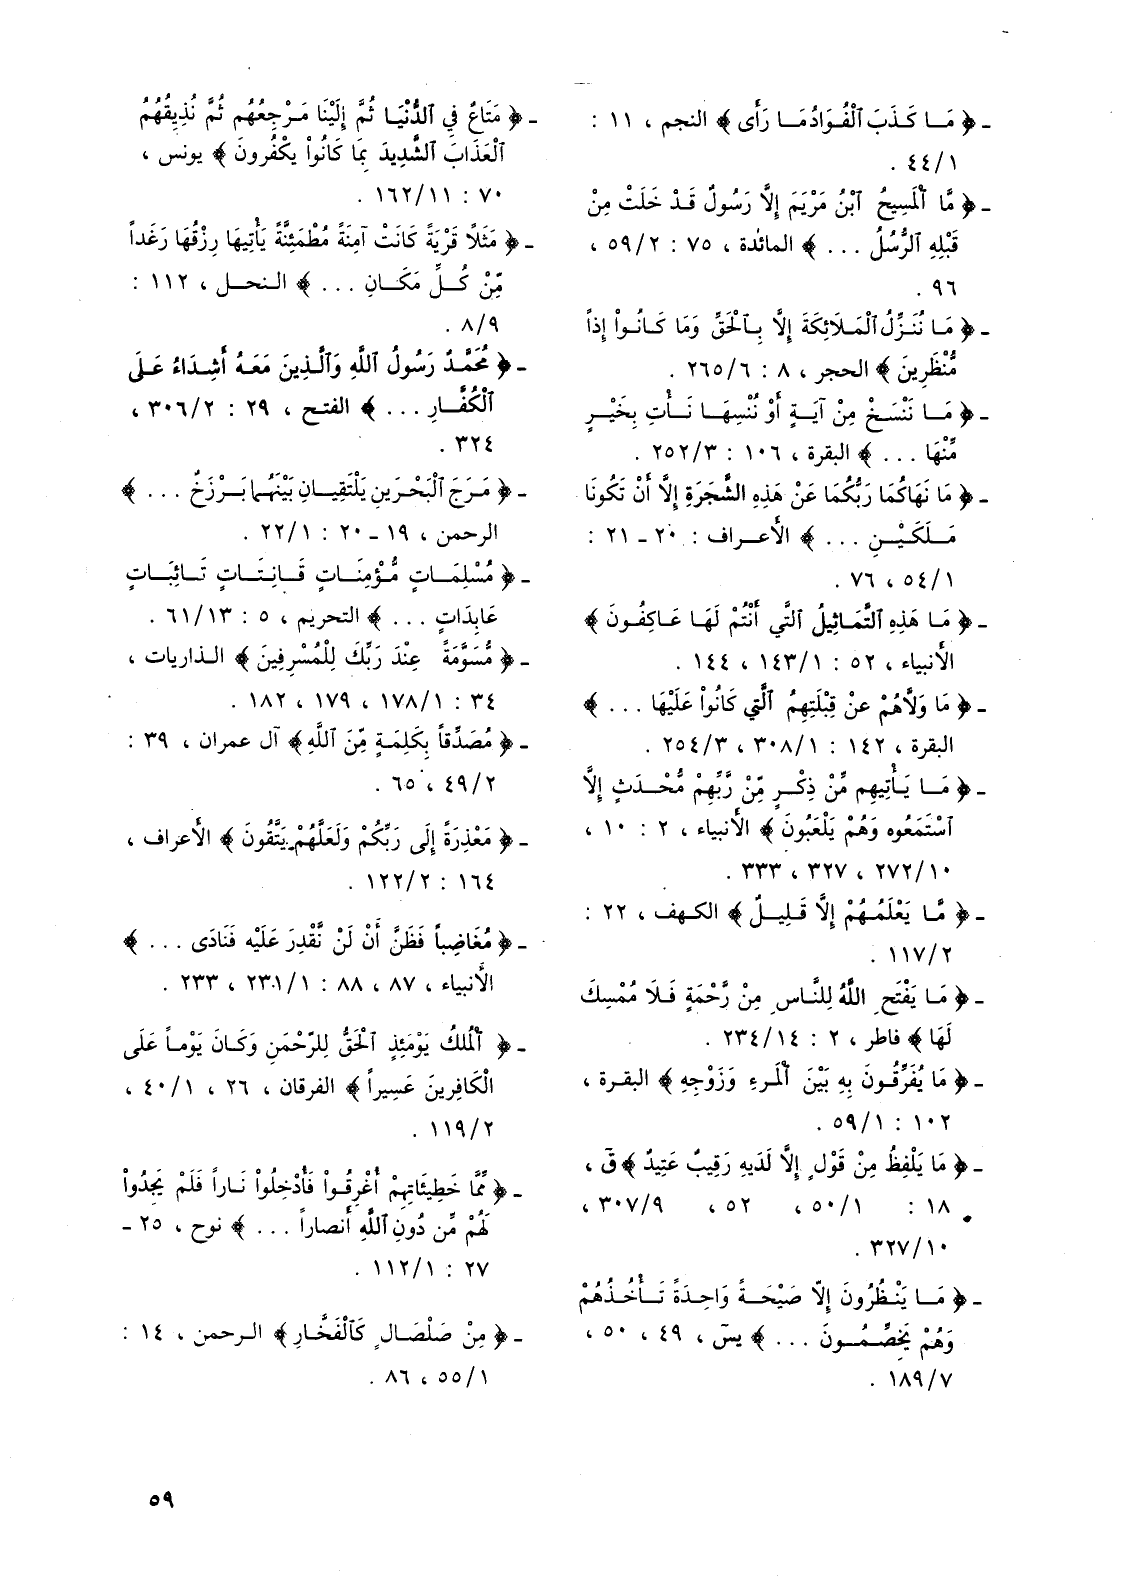 - ﴿ مَا كَذَبَ ٱلْفُوَادُ مَا رَأَى ﴾ النجم ، ١١ :
١/‏٤٤ .
- ﴿ مَّا ٱلْمَسِيحُ ٱبْنُ مَرْيَمَ إِلَّا رَسُولٌ قَدْ خَلَتْ مِنْ
قَبْلِهِ ٱلرُّسُلُ ... ﴾ المائدة ، ٧٥ : ٢/‏٥٩ ،
٩٦ .
- ﴿ مَا نُنَزِّلُ ٱلْمَلَائِكَةَ إِلَّا بِٱلْحَقِّ وَمَا كَانُواْ إِذاً
مُّنْظَرِينَ ﴾ الحجر ، ٨ : ٦/‏٢٦٥ .
- ﴿ مَا نَنْسَخْ مِنْ آيَةٍ أَوْ نُنْسِهَا نَأْتِ بِخَيْرٍ
مِّنْهَا ... ﴾ البقرة ، ١٠٦ : ٣/‏٢٥٢ .
- ﴿ مَا نَهَاكُمَا رَبُّكُمَا عَنْ هَذِهِ الشَّجَرَةِ إِلَّا أَنْ تَكُونَا
مَلَكَيْنِ ... ﴾ الأعراف : ٢٠ - ٢١ :
١/‏٥٤ ، ٧٦ .
- ﴿ مَا هَذِهِ ٱلتَّمَاثِيلُ ٱلَّتِي أَنْتُمْ لَهَا عَاكِفُونَ ﴾
الأنبياء ، ٥٢ : ١/‏١٤٣ ، ١٤٤ .
- ﴿ مَا وَلَّاهُمْ عَنْ قِبْلَتِهِمُ ٱلَّتِي كَانُواْ عَلَيْهَا ... ﴾
البقرة ، ١٤٢ : ١/‏٣٠٨ ، ٣/‏٢٥٤ .
- ﴿ مَا يَأْتِيهِم مِّنْ ذِكْرٍ مِّنْ رَّبِّهِمْ مُّحْدَثٍ إِلَّا
ٱسْتَمَعُوه وَهُمْ يَلْعَبُونَ ﴾ الأنبياء ، ٢ : ١٠ ،
١٠/‏٢٧٢ ، ٣٢٧ ، ٣٣٣ .
- ﴿ مَّا يَعْلَمُهُمْ إِلَّا قَلِيلٌ ﴾ الكهف ، ٢٢ :
٢/‏١١٧ .
- ﴿ مَا يَفْتَحِ اللَّهُ لِلنَّاسِ مِنْ رَّحْمَةٍ فَلَا مُمْسِكَ
لَهَا ﴾ فاطر ، ٢ : ١٤/‏٢٣٤ .
- ﴿ مَا يُفَرِّقُونَ بِهِ بَيْنَ ٱلْمَرءِ وَزَوْجِهِ ﴾ البقرة ،
١٠٢ : ١/‏٥٩ .
- ﴿ مَا يَلْفِظُ مِنْ قَوْلٍ إِلَّا لَدَيهِ رَقِيبٌ عَتِيدٌ ﴾ قَ ،
١٨ : ١/‏٥٠ ، ٥٢ ، ٩/‏٣٠٧ ،
١٠/‏٣٢٧ .
- ﴿ مَا يَنْظُرُونَ إِلّا صَيْحَةً وَاحِدَةً تَأْخُذُهُمْ
وَهُمْ يَخِصِّمُونَ ... ﴾ يسَ ، ٤٩ ، ٥٠ ،
٧/‏١٨٩ .
- ﴿ مَتَاعٌ فِي ٱلدُّنْيَا ثُمَّ إِلَيْنَا مَرْجِعُهُم ثُمَّ نُذِيقُهُمُ
ٱلْعَذَابَ ٱلشَّدِيدَ بِمَا كَانُواْ يَكْفُرونَ ﴾ يونس ،
٧٠ : ١١/‏١٦٢ .
- ﴿ مَثَلًا قَرْيَةً كَانَتْ آمِنَةً مُطْمَئِنَّةً يَأْتِيهَا رِزْقُهَا رَغَداً
مِّنْ كُلِّ مَكَانٍ ... ﴾ النحل ، ١١٢ :
٨/‏٩ .
- ﴿ مُحَمَّدٌ رَسُولُ ٱللَّهِ وَٱلَّذِينَ مَعَهُ أَشِدَاءُ عَلَى
ٱلْكُفَّارِ ... ﴾ الفتح ، ٢٩ : ٢/‏٣٠٦ ،
٣٢٤ .
- ﴿ مَرَجَ ٱلْبَحْرَينِ يَلْتَقِيانِ بَيْنَهُما بَرْزَخٌ ... ﴾
الرحمن ، ١٩ - ٢٠ : ١/‏٢٢ .
- ﴿ مُسْلِمَاتٍ مُّؤْمِنَاتٍ قَانِتَاتٍ تَائِبَاتٍ
عَابِدَاتٍ ... ﴾ التحريم ، ٥ : ١٣/‏٦١ .
- ﴿ مُّسَوَّمَةً عِنْدَ رَبِّكَ لِلْمُسْرِفِينَ ﴾ الذاريات ،
٣٤ : ١/‏١٧٨ ، ١٧٩ ، ١٨٢ .
- ﴿ مُصَدِّقاً بِكَلِمَةٍ مِّنَ ٱللَّهِ ﴾ آل عمران ، ٣٩ :
٢/‏٤٩ ، ٦٥ .
- ﴿ مَعْذِرَةً إِلَى رَبِّكُمْ وَلَعَلَّهُمْ يَتَّقُونَ ﴾ الأعراف ،
١٦٤ : ٢/‏١٢٢ .
- ﴿ مُغَاضِباً فَظَنَّ أَنْ لَنْ نَّقْدِرَ عَلَيْه فَنَادَى ... ﴾
الأنبياء ، ٨٧ ، ٨٨ : ١/‏٢٣١ ، ٢٣٣ .
- ﴿ ٱلْمُلكُ يَوْمَئِذٍ ٱلْحَقُّ لِلرَّحْمَنِ وَكَانَ يَوْماً عَلَى
الْكَافِرِينَ عَسِيراً ﴾ الفرقان ، ٢٦ ، ١/‏٤٠ ،
٢/‏١١٩ .
- ﴿ مِّمَّا خَطِيئَاتِهِمْ أُغْرِقُواْ فَأُدْخِلُواْ نَاراً فَلَمْ يَجِدُواْ
لَهُمْ مِّن دُونِ ٱللَّهِ أَنصاراً ... ﴾ نوح ، ٢٥ -
٢٧ : ١/‏١١٢ .
- ﴿ مِنْ صَلْصَالٍ كَٱلْفَخَّارِ ﴾ الرحمن ، ١٤ :
١/‏٥٥ ، ٨٦ .
٥٩